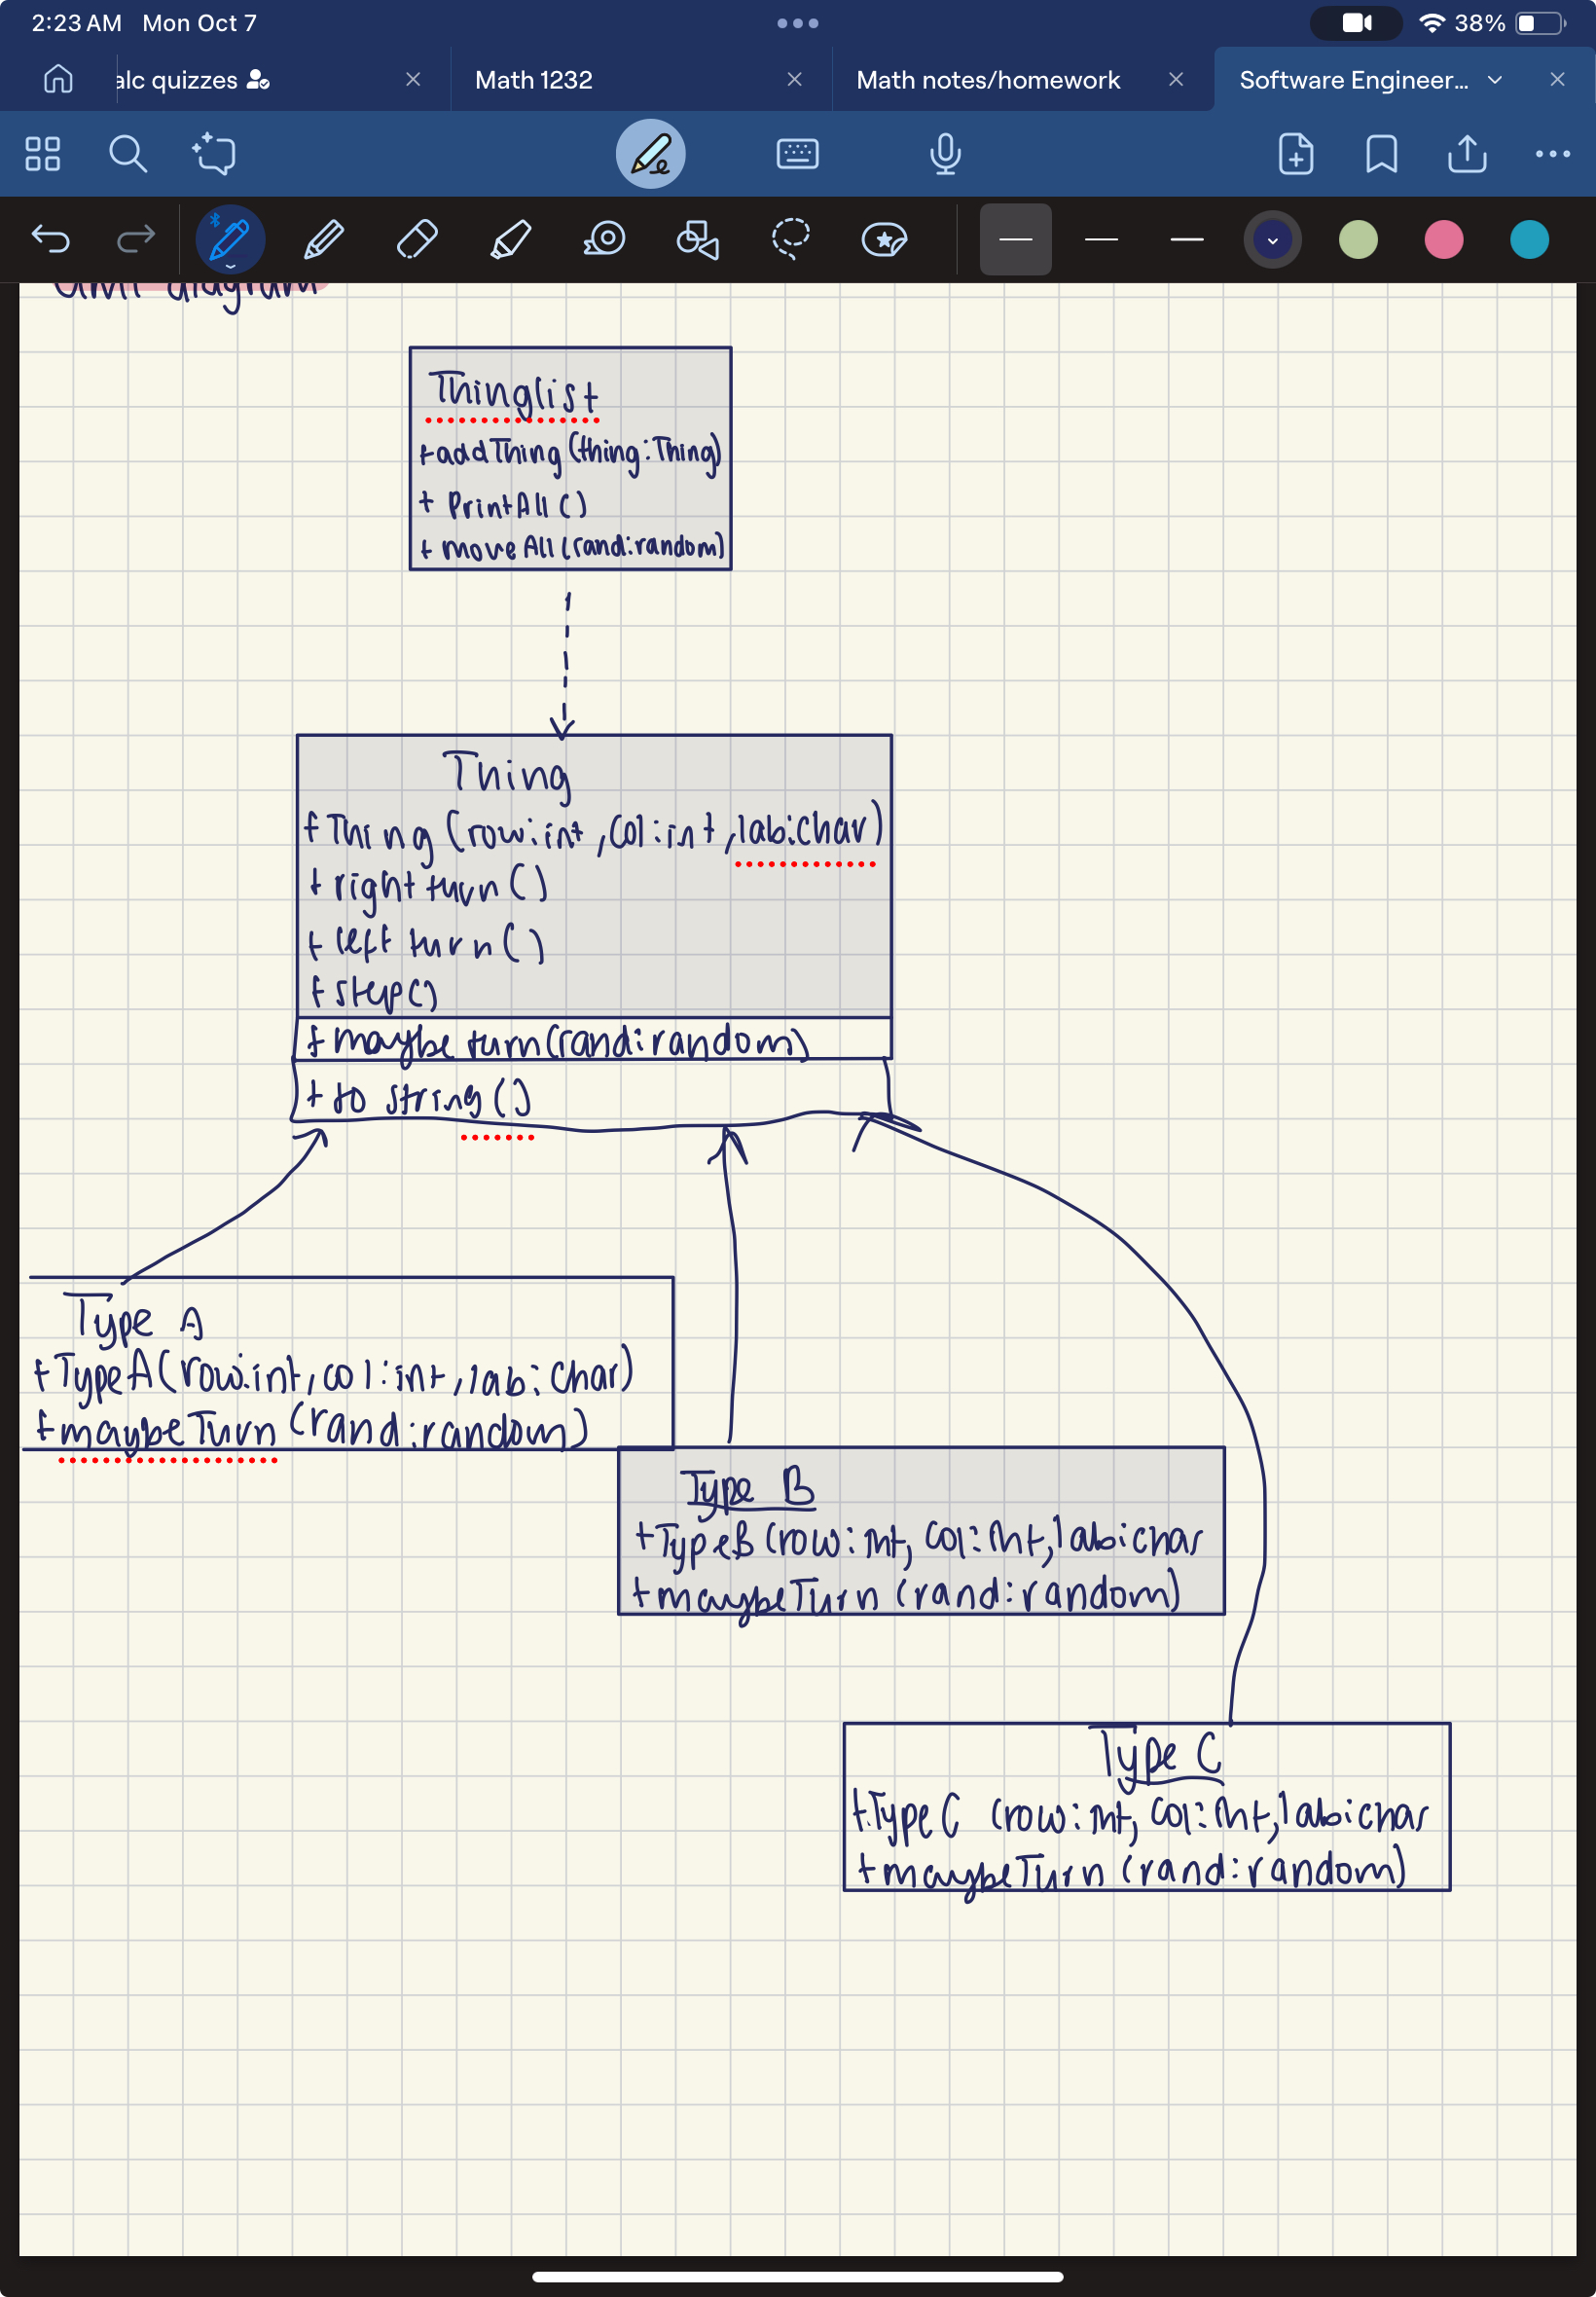 2:23 AM Mon Oct 7
38%
alc quizzes
Math 1232
Math notes/homework
Software Engineer...
diagram
Thinglist
+addThing (thing:Thing)
+ PrintAll ()
+ moveAll (rand:random)
Thing
+Thing (row:int, Col:int, lab:char)
+ right turn ()
+ left turn ()
+ step()
+ maybe turn(rand:random)
+ to string ()
Type A
+TypeA(row:int, col:int, lab:char)
+maybeTurn (rand:random)
Type B
+TypeB (row:int, col:int, lab:char
+maybeTurn (rand:random)
Type C
+TypeC (row:int, col:int, lab:char
+maybeTurn (rand:random)